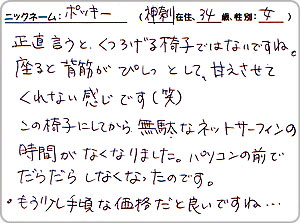 ニックネーム:ポッキー (神奈川在住、34歳、性別:女)
正直言うと、くつろげる椅子ではないですね。
座ると背筋がぴしっとして、甘えさせて
くれない感じです(笑)
この椅子にしてから無駄なネットサーフィンの
時間がなくなりました。パソコンの前で
だらだらしなくなったのです。
・もう少し手頃な価格だと良いですね…